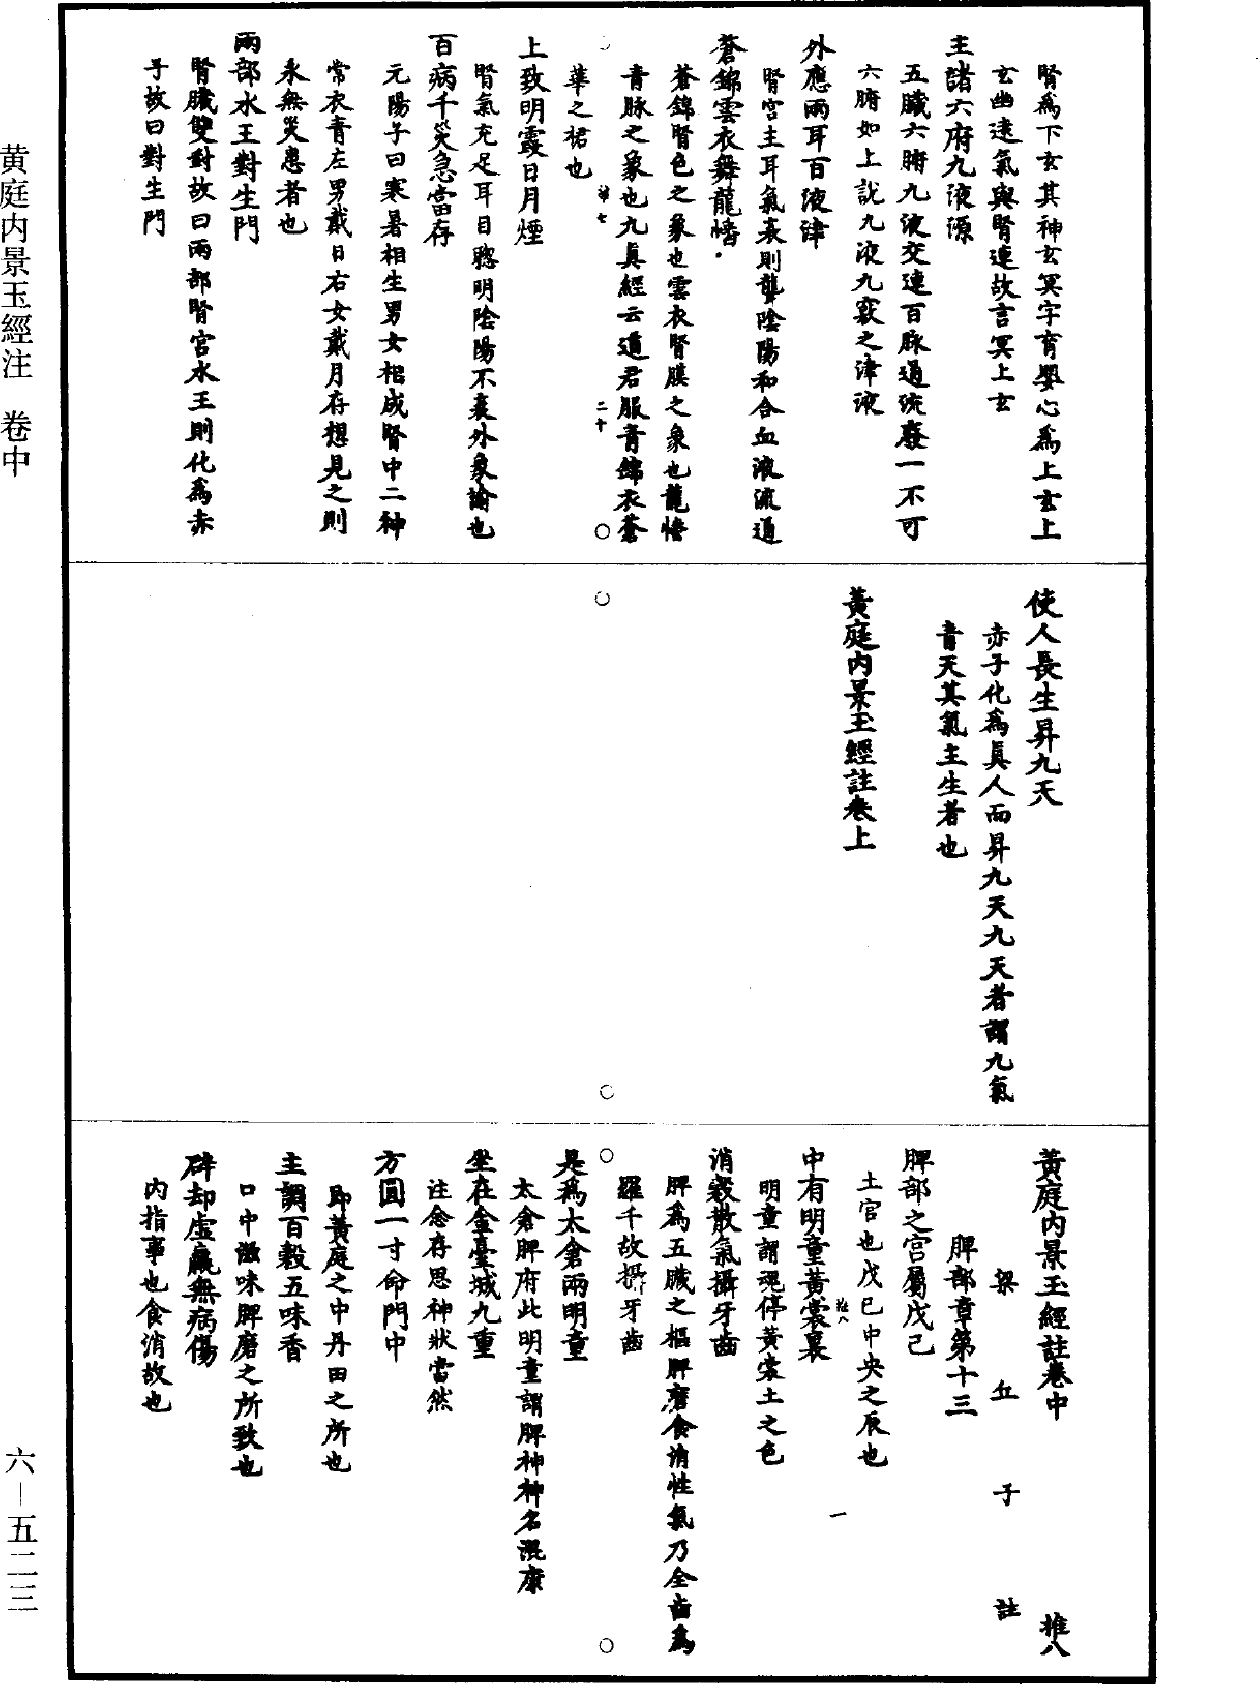 腎爲下玄其神玄冥字育嬰心爲上玄上
玄幽遠氣與腎連故言冥上玄
主諸六府九液源
五臟六腑九液交連百脉通流廢一不可
六腑如上說九液九竅之津液
外應兩耳百液津
腎宮主耳氣衰則聾陰陽和合血液流通
蒼錦雲衣舞龍幡
蒼錦腎色之象也雲衣腎膜之象也龍幡
青脉之象也九眞經云道君服青錦衣蒼
華之裙也
二十
上致明霞日月煙
腎氣充足耳目聰明陰陽不衰外象諭也
百病千災急當存
元陽子曰寒暑相生男女相成腎中二神
常衣青左男戴日右女戴月存想見之則
永無災患者也
兩部水王對生門
腎臟雙對故曰兩部腎宮水王則化爲赤
子故曰對生門
使人長生昇九天
赤子化爲眞人而昇九天九天者謂九氣
青天其氣主生者也
黃庭内景玉經註卷上
黃庭内景玉經註卷中 推八
梁丘子註
脾部章第十三
脾部之宮屬戊己
土官也戊己中央之辰也
中有明童黃裳裏
一
明童謂魂停黃裳土之色
消穀散氣攝牙齒
脾爲五臟之樞脾磨食消性氣乃全齒爲
羅千故攝牙齒
是爲太倉兩明童
太倉脾府此明童謂脾神神名混康
坐在金臺城九重
注念存思神狀當然
方圓一寸命門中
即黃庭之中丹田之所也
主調百穀五味香
口中滋味脾磨之所致也
辟却虛羸無病傷
内指事也食消故也
黄庭内景玉經注　卷中
六—五二三